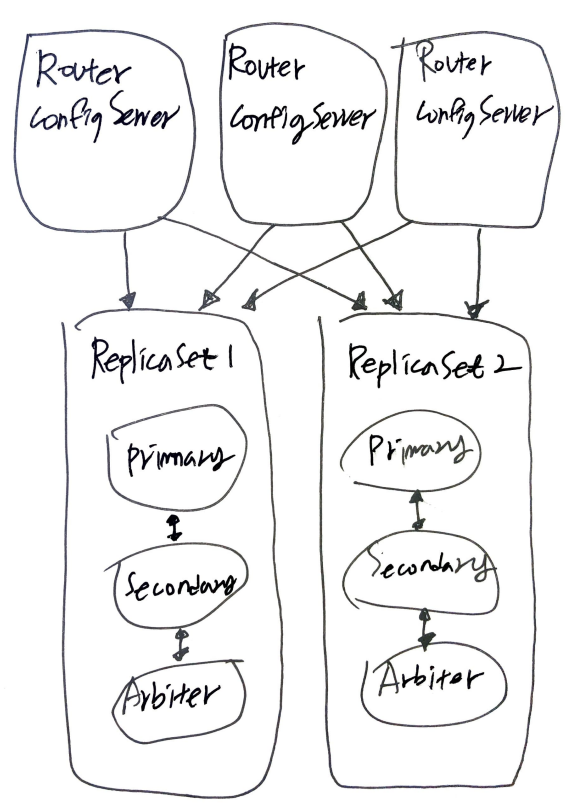 Router
Config Server
Router
Config Server
Router
Config Server
ReplicaSet 1
Primary
Secondary
Arbiter
ReplicaSet 2
Primary
Secondary
Arbiter